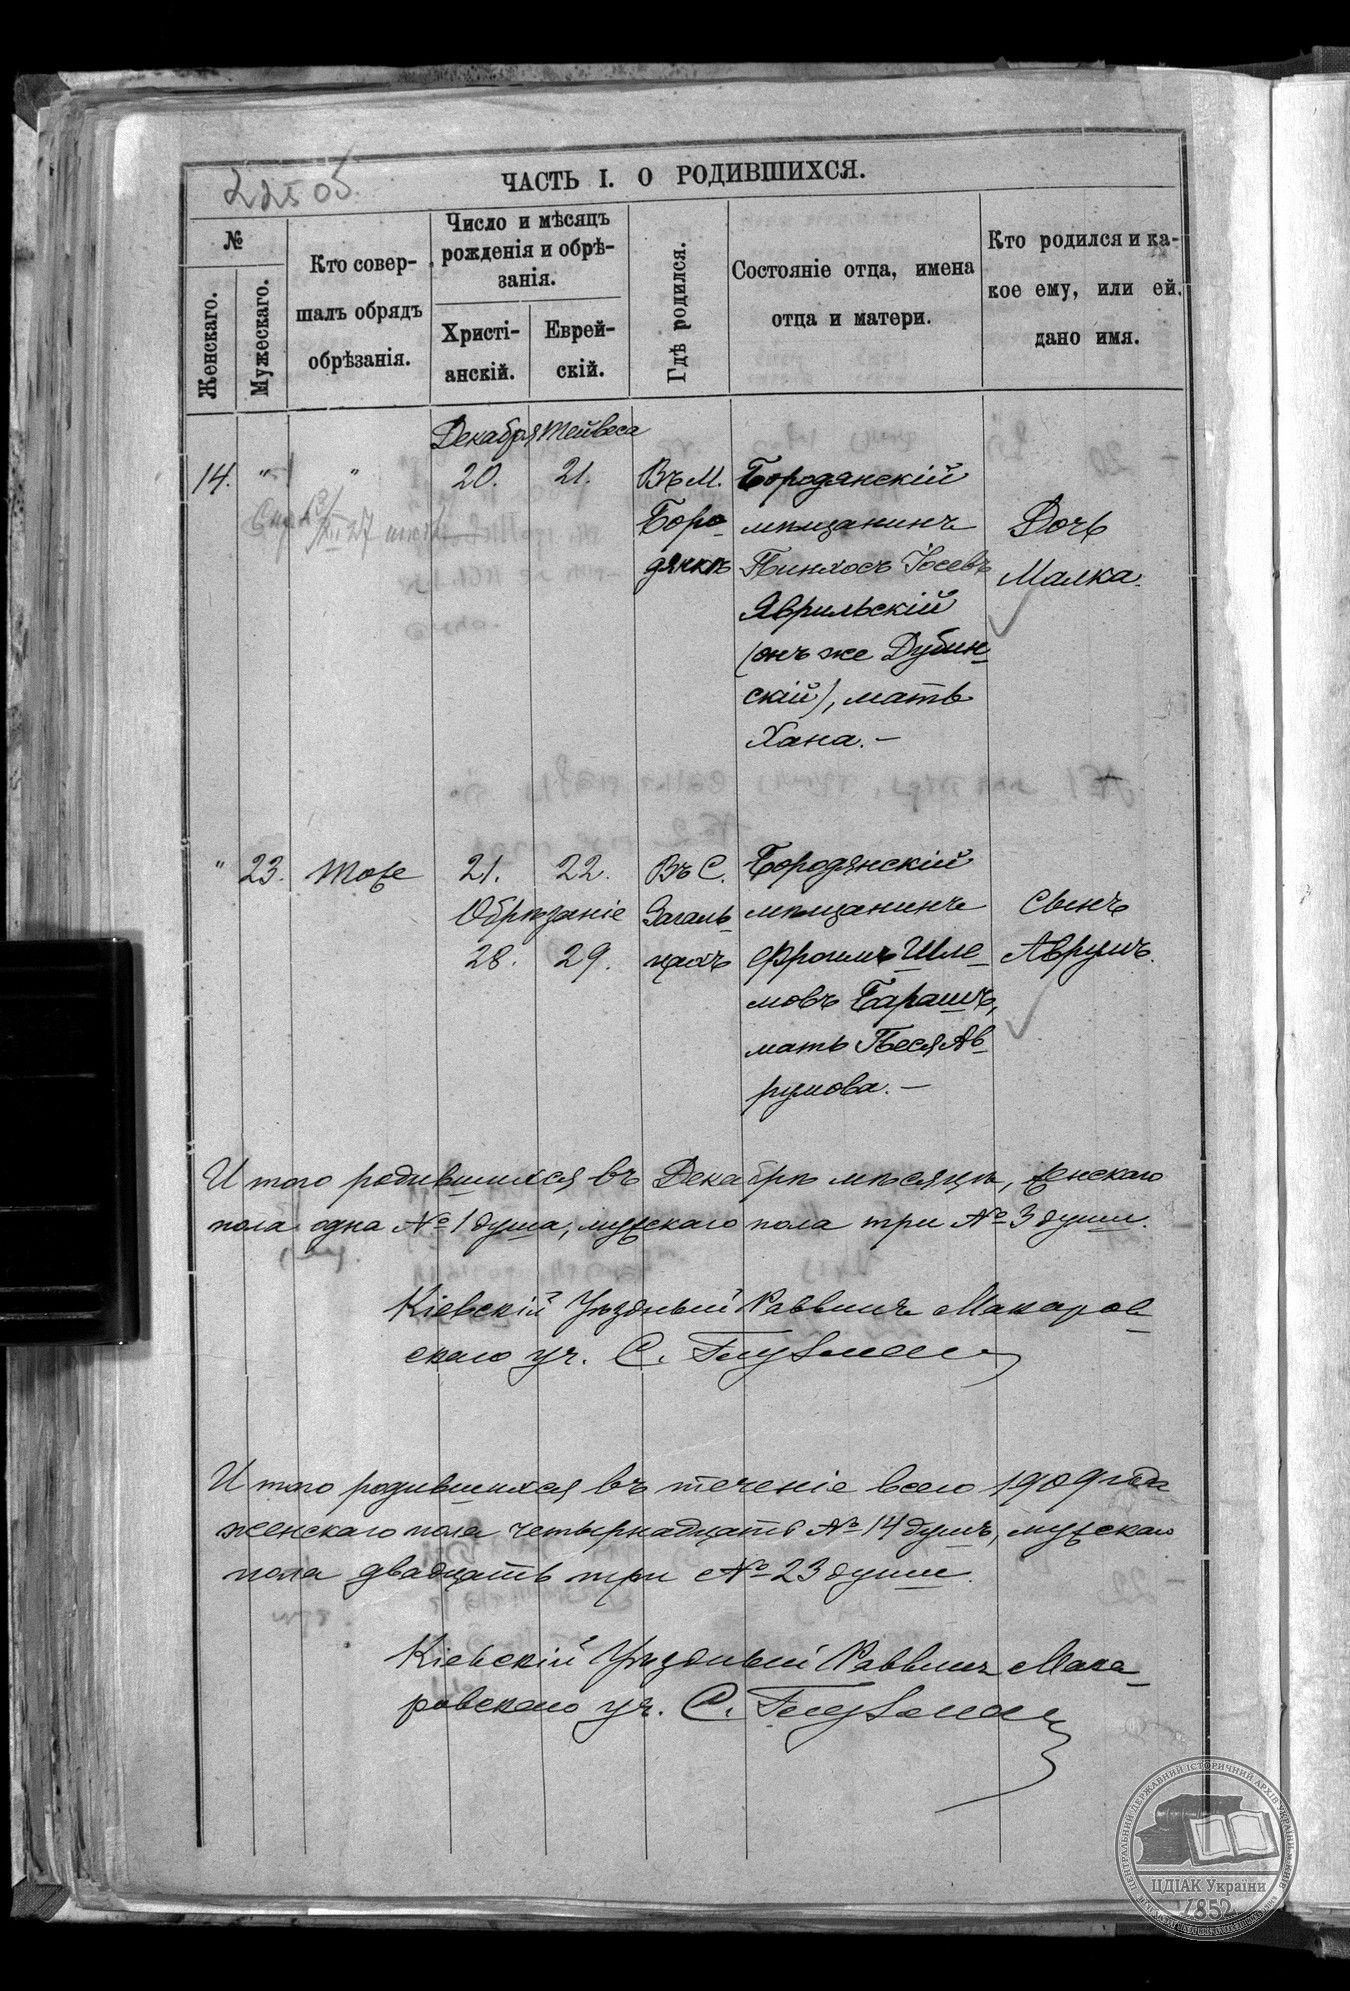 22505.
ЧАСТЬ I. О РОДИВШИХСЯ.
№
Женскаго.
Мужескаго.
Кто совер-
шалъ обрядъ
обрѣзанія.
Число и мѣсяцъ
рожденія и обрѣ-
занія.
Христі-
анскій.
Еврей-
скій.
Гдѣ родился.
Состояніе отца, имена
отца и матери.
Кто родился и ка-
кое ему, или ей.
дано имя.
Декабря Тейвеса
14. " " 20. 21.
Въ М.
Боро-
дянкѣ
Бородянскій
мѣщанинъ
Пинхосъ Іосевъ
Яврильскій
(онъ же Дубин-
скій), мать
Хана. —
Дочь
Малка.
" 23. Тоже 21. 22.
Обрѣзаніе
28. 29.
Въ С.
Загаль-
цахъ
Бородянскій
мѣщанинъ
Фроимъ Шле-
мовъ Барашъ,
мать Песя Ав-
румова. —
Сынъ
Аврумъ.
Итого родившихся въ Декабрѣ мѣсяцѣ, женскаго
пола одна № 1 душа, мужскаго пола три № 3 души.
Кіевскій Уѣздный Раввинъ Макаров-
скаго уч. С. Глузман
Итого родившихся въ теченіе всего 1909 года
женскаго пола четырнадцать № 14 душъ, мужскаго
пола двадцать три № 23 души.
Кіевскій Уѣздный Раввинъ Мака-
ровскаго уч. С. Глузман
ЦЕНТРАЛЬНИЙ ДЕРЖАВНИЙ ІСТОРИЧНИЙ АРХІВ УКРАЇНИ, м. КИЇВ
ЦДІАК України
1852